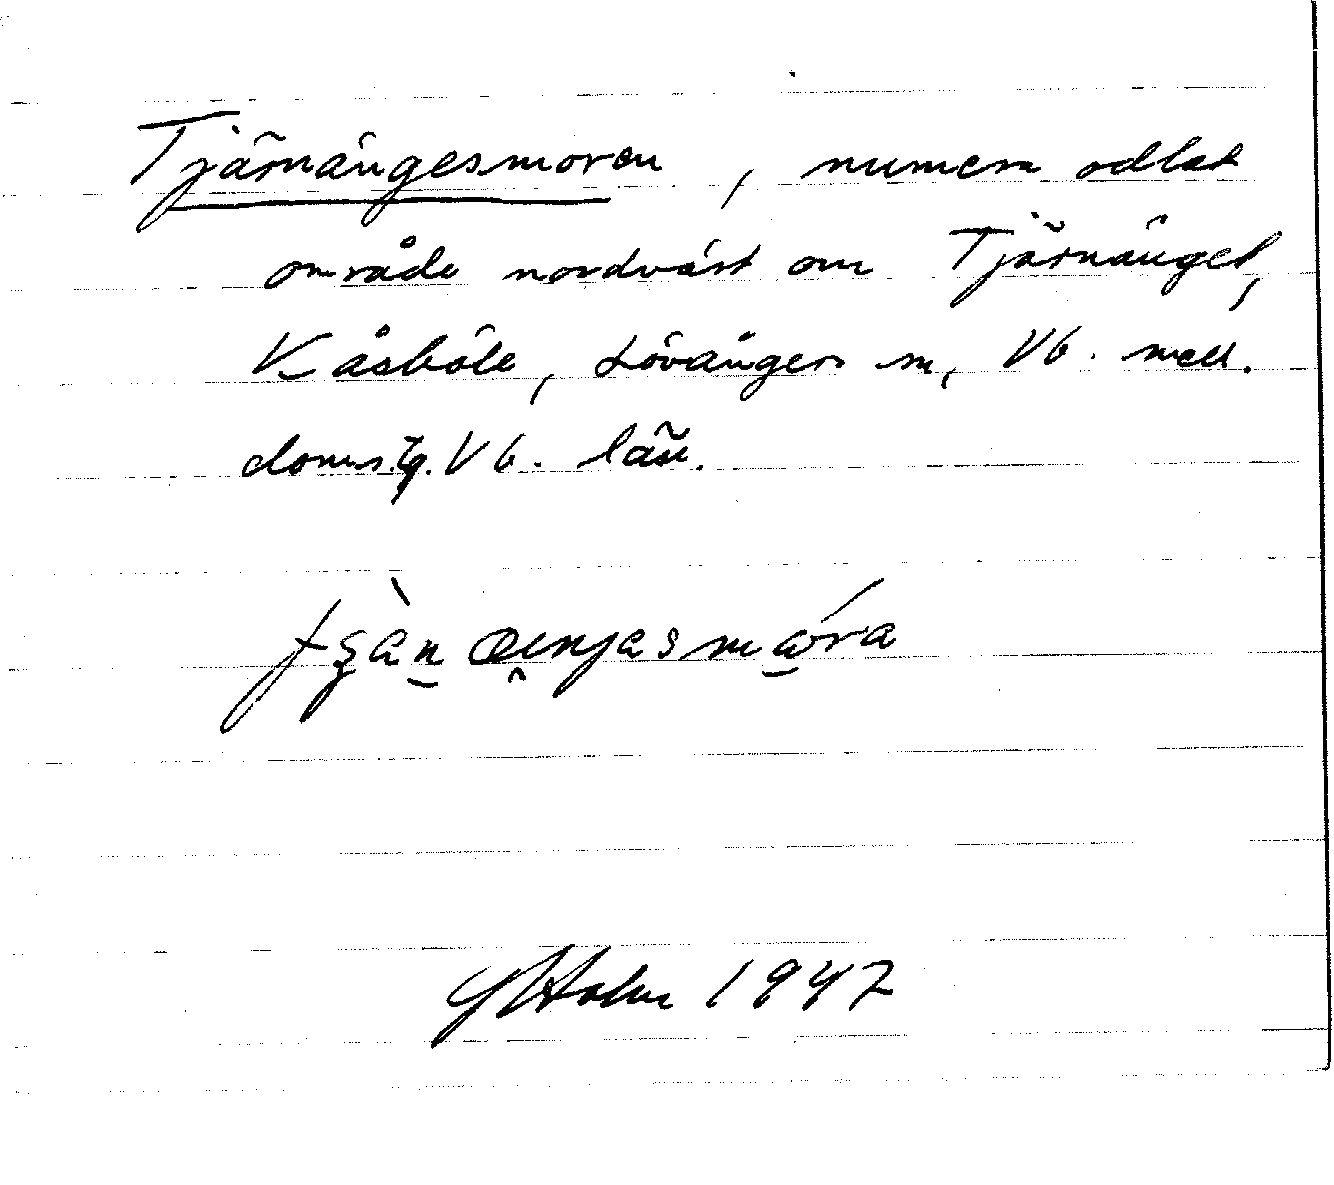 Tjärnängesmoren, numera odlat
område nordväst om Tjärnänget,
Kåsböle, Lövångers sn, Vb. mell.
doms.g. Vb. län.
Holm 1947